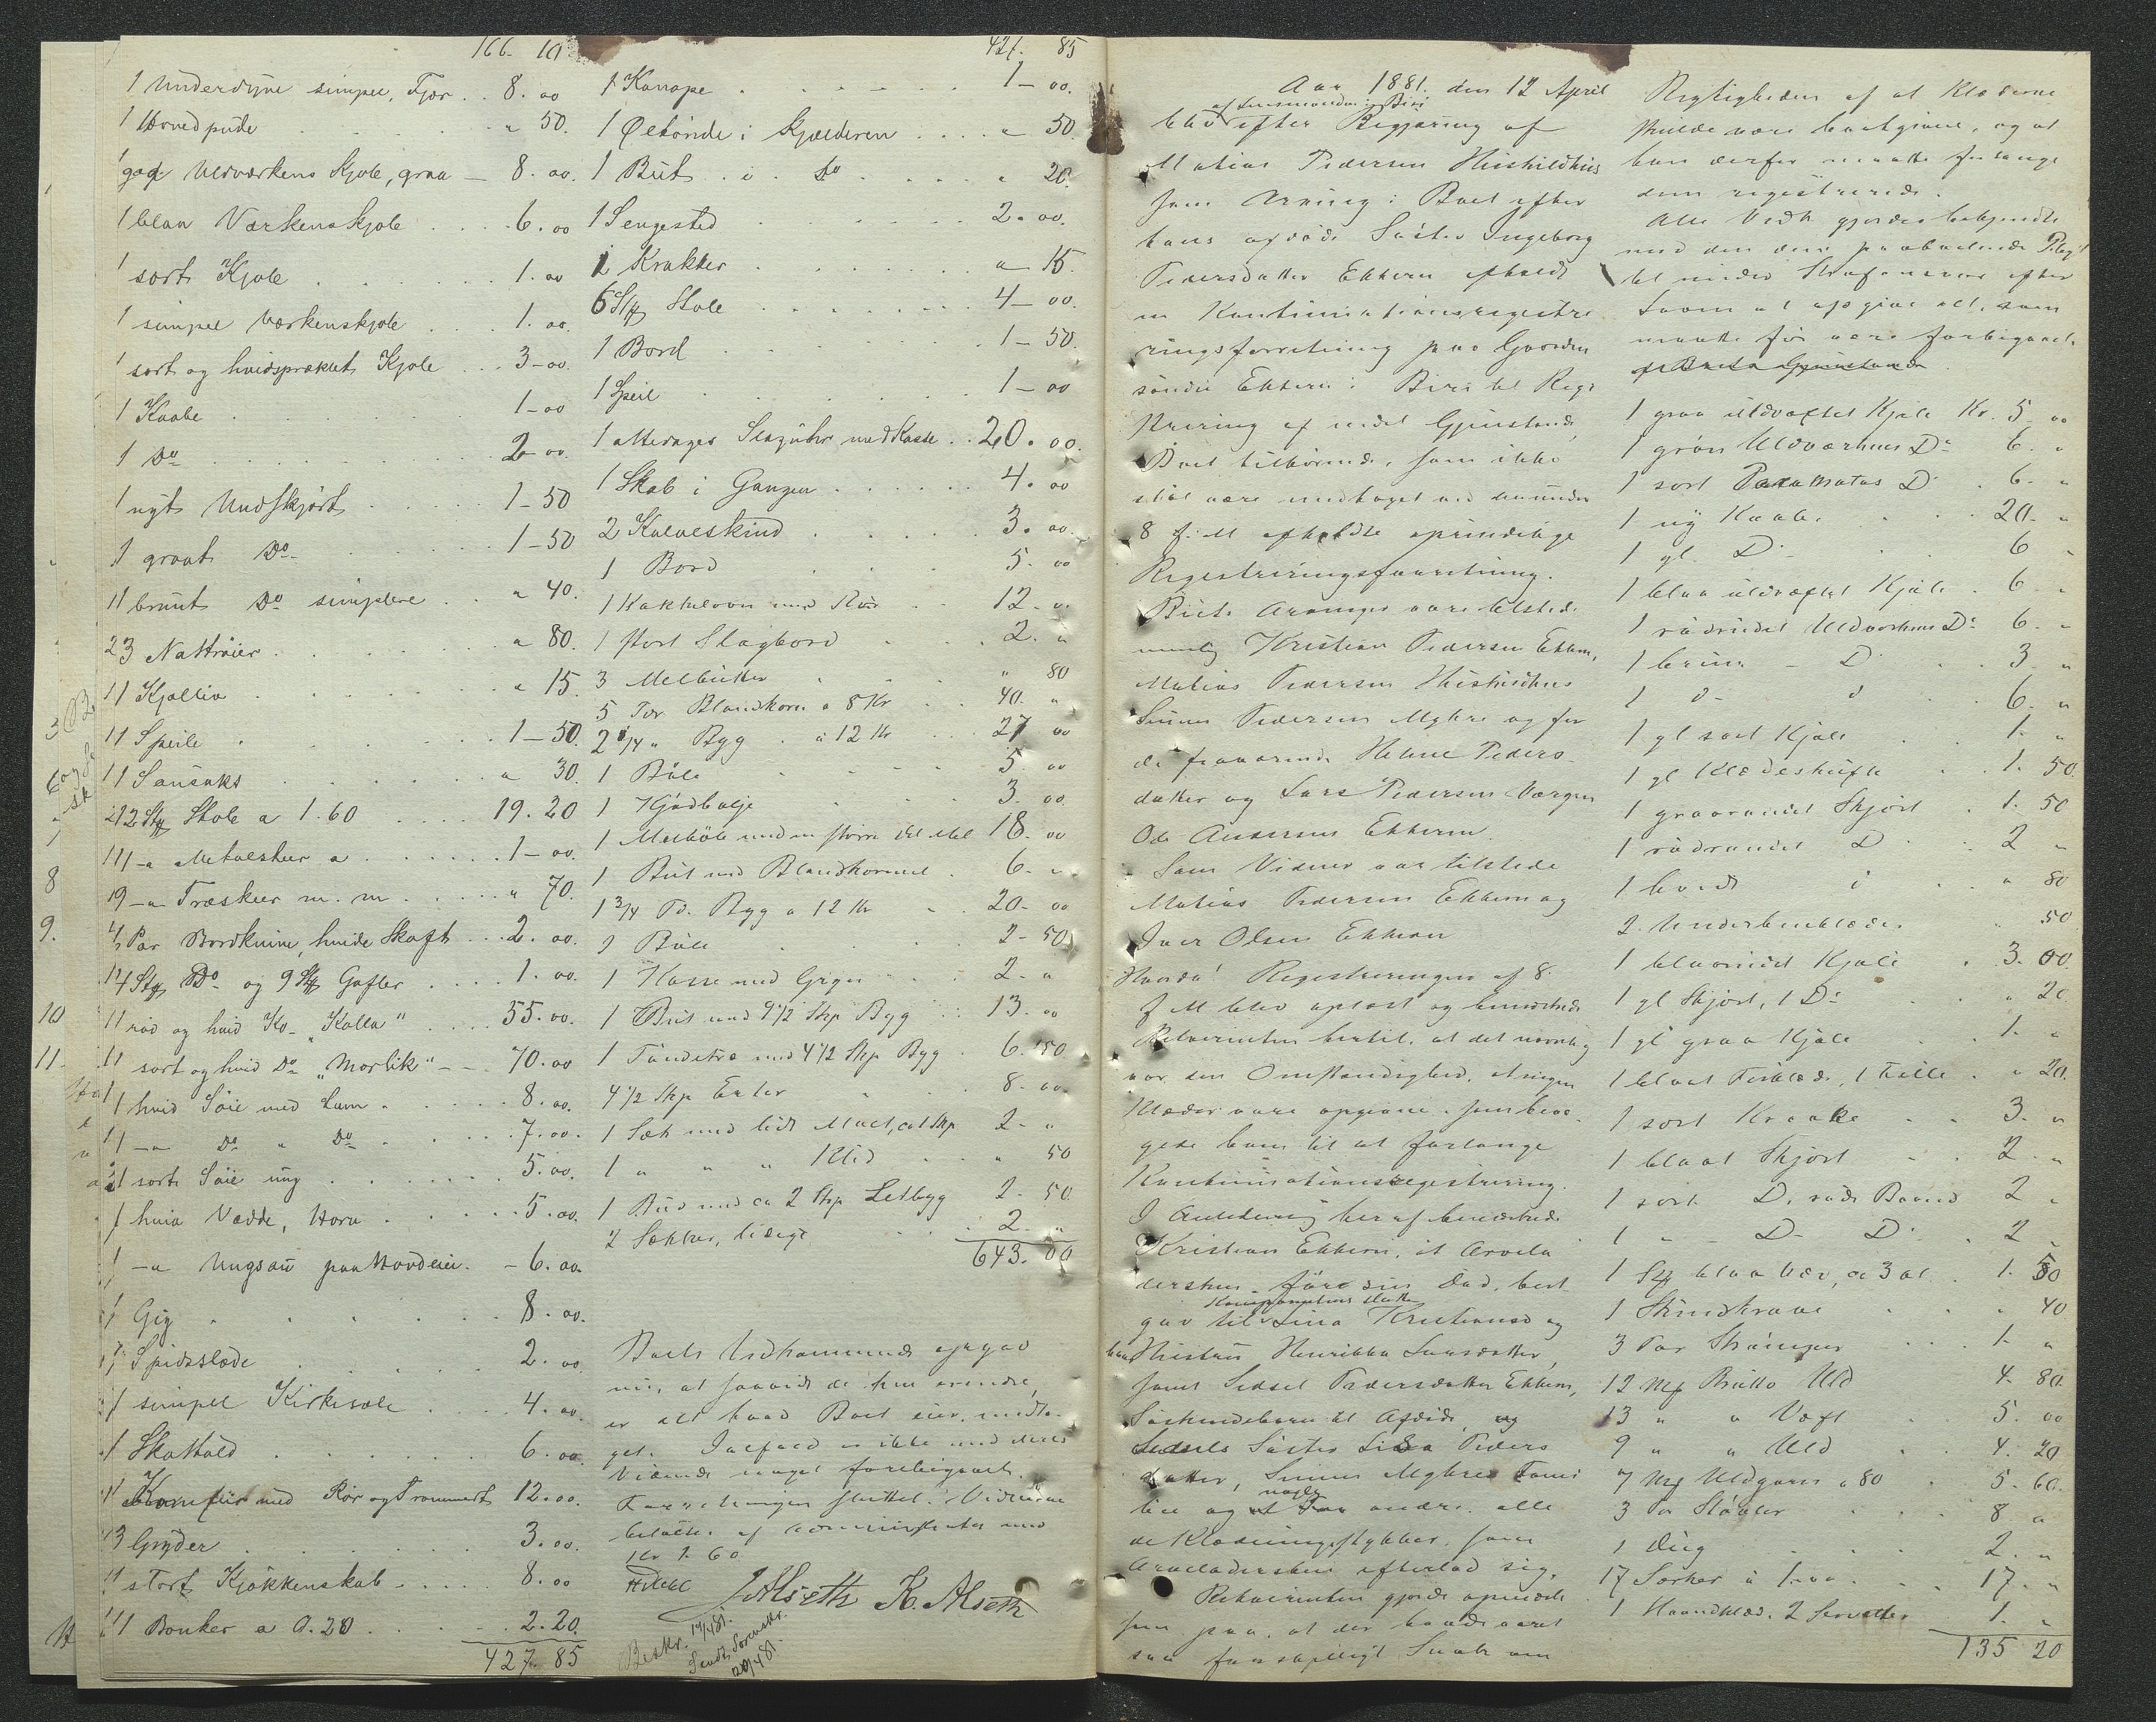 166. 10
1 Underdyne simpel, Fjær . . 8. 00
1 Hovedpude " 50.
Uldværkens Kjole, graa — 8. 00.
1 blaa Værkenskjole . . . 6. 00
1 sort Kjole . . . 1. 00
1 simpel Værkenskjole . . . 1. 00.
1 sort og hvidsprækket Kjole . . . 3-00.
1 Kaabe . . . 1-00
1 Do . . . 2-00.
1 nyt Undskjørt . . . 1-50
1 graat Do . . . 1-50
1 brunt Do simplere . . " 40.
3 Nattrøier . . . " 80.
1 Kjolliv . . . " 15.
1 Speile . . . 1-50.
1 Sausaks . . . " 30.
12 Stk Stole a 1.60 . . . 19.20
" Metalskeer a . . . 1-00.
9 " Træskeer m. m . . . " 70.
Par Bordknive, hvide Skaft . . . 2. 00.
4 Stk Do og 9 Stk Gafler . . . 1. 00.
1 rød og hvid Ko "Kolla" . . . 55. 00.
1 sort og hvid Do "Morlik" - - 70. 00
1 hvid Søie med Lam . . . 8. 00.
1 " Do " Do . . . 7. 00.
1 sort Søie ung . . . 5. 00.
1 hvid Vædde, Horn . . . 5. 00.
1 " Ungsau paa Hovdeier. - 6. 00.
1 Gig . . . 8. 00.
1 Spidsslæde . . . 2. 00
1 simpel Kirkesæle . . . 4. 00.
1 Skattold . . . 6. 00.
1 Komfur med Rør og Trommert 12. 00.
3 Gryder . . . 3. 00.
1 stort Kjøkkenskab . . . 8. 00
11 Bonker a 0.20 . . . 2.20.
427 85
427. 85
1 Kanape . . . 1-00.
1 Øltønde i Kjelderen . . . " 50
1 Büt i Do . . . " 20.
1 Sengested . . . 2. 00.
2 Krakker . . . " 15.
6 Stk Stole . . . 4-00.
1 Bord . . . 1-50.
1 Speil . . . 1-00
1 ottedages Slaguhr med Kasse . . 20. 00.
1 Skab i Gangen . . . 4. 00
2 Kalveskind . . . 3. 00.
1 Bord . . . 5. 00
1 Kakkelovn med Rør . . 12. 00
1 stort Slagbord . . 2. "
3 Melbütter " 80
5 Tdr Blandkorn a 8 Kr . . 40. "
2 1/4 " Byg . a 12 Kr . . 27 00
1 Bøle . . . 5 00
1 Kjødbalje . . . 3. 00
1 Melbøle med en større Del Mel 18. 00
1 Büt med Blandkornmel . 6. "
1 3/4 Td. Byg a 12 Kr . . 20. 00
1 Bøle . . . 2. 50
1 Kasse med Gryn . . 2. "
1 Büt med 9 1/2 Skp Byg . . 13. 00
1 Tøndetræ med 4 1/2 Skp Byg . 6. 50
4 1/2 Skp Erter . . 8. 00
1 Sæk med lidt Malt, ca 1 Skp 2. "
1 " " " Klid . . " 50
1 Büt med ca 2 Skp Letbyg 2. 50
2 Sækker, ledige . . 2. "
643. 00
Boets Vedkommende opgav
nu, at saavidt de kun erindre,
er alt hvad Boet eier, medta-
get. Ialfald er ikke med deres
Vidende noget forbigaaet.
Forretningen sluttet. Vidnerne
betaltes af Administrator med
Kr 1. 60
J Alseth K. Alseth
Beskr. 19/4 81.
Sendt Sorenskr.
20/4 81.
Aar 1881. den 12 April
af Lensmanden i Biri
blev efter Begjæring af
Matias Pedersen Hiskildhus
som Arving i Boet efter
hans afdøde Søster Ingeborg
Pedersdatter Ekkern afholdt
en Kontinuationsregistre
ringsforretning paa Gaarden
søndre Ekkern i Biri til Regi
strering af endel Gjenstande,
Boet tilhørende, som ikke
skal være medtaget ved den under
8 f. M afholdte oprindelige
Registreringsforretning.
Boets Arvinger vare tilstede
nemlig Kristian Pedersen Ekkern,
Matias Pedersen Hiskildhus
Simen Pedersen Myhre og for
de fraværende Helene Peders-
datter og Lars Pedersen Værgen
Ole Andersen Ekkern.
Som Vidner var tilstede
Matias Pedersen Ekkern og
Iver Olsen Ekkern
Hvorda! Registreringen af 8.
f M blev oplæst og bemærkede
Rekvirenten hertil, at det navnlig
var den Omstændighed, at ingen
Klæder vare opgivne, som bevæ
gede ham til at forlange
Kontinuationsregistrering.
I Anledning heraf bemærkede
Kristian Ekkern, at Arvela
dersken før sin Død, bort
gav til Lina Kristiansd og
Kristian Henrikka Larsdatter,
samt Sidsel Pedersdatter Ekkern,
Søskendebarn til Afdøde, og
Sidsels Søster Lisa Peders
datter, Simen Myhres Fami
lie og nogle andre alle
de Klædningsstykker, som
Arveladersken efterlod sig.
Rekvirenten gjorde opmærk
som paa, at der havde været
saa forskjelligt Snak om
Rigtigheden af at Klæderne
skulde være bortgivne, og at
han derfor maatte forlange
dem registrerede.
Alle Vedk. gjordes bekjendte
med den dem paahvilende Pligt
til under Strafansvar efter
Loven at opgive alt, som
maatte før være forbigaaet.
1 graa uldvæftet Kjole Kr. 5 00
1 grøn Uldværkens Do 6. "
1 sort Paramatas Do . 6. "
1 ny Kaabe . . 20. "
1 gl. Do . . 6 "
1 blaa uldvæftet Kjole . 6. "
1 rødrudet Uldværkens Do 6. "
1 brun - D . . 3. "
1 d- d . . 6. "
1 gl sort Kjole . . 1. "
1 gl Klædeskufte . . 1. 50
1 graarandet Skjørt . 1. 50
1 rødrandet D . . 2 "
1 hvidt d . . " 80
2 Underbenklæder " 50
1 blaarudet Kjole . 3. 00.
1 gl Skjørt, 1 Do . " 20
1 gl graa Kjole . 1. "
1 blaat Forklæde, 1 Fille . " 20.
1 sort Kraake . . 3. "
1 blaat Skjørt . . 2. "
1 sort D. røde Baand 2 "
1 - - D- D . 2 "
1 Stk blaa Vær, ca 3 al 1. 50
1 Skindkrave . . " 40
3 Par Strømper . . 1. "
12 Mk Brutto Uld 4. 80.
13 " " Væft . 5. 00
9 " " Uld . 4. 20
7 Mk Uldgarn a 80 . 5. 60.
3 Par Støvler . . 8 "
1 Dug . . 2. "
17 Særker a 1.00 . . 17. "
1 Haandklæd. 2 Servetter 1. "
135 20